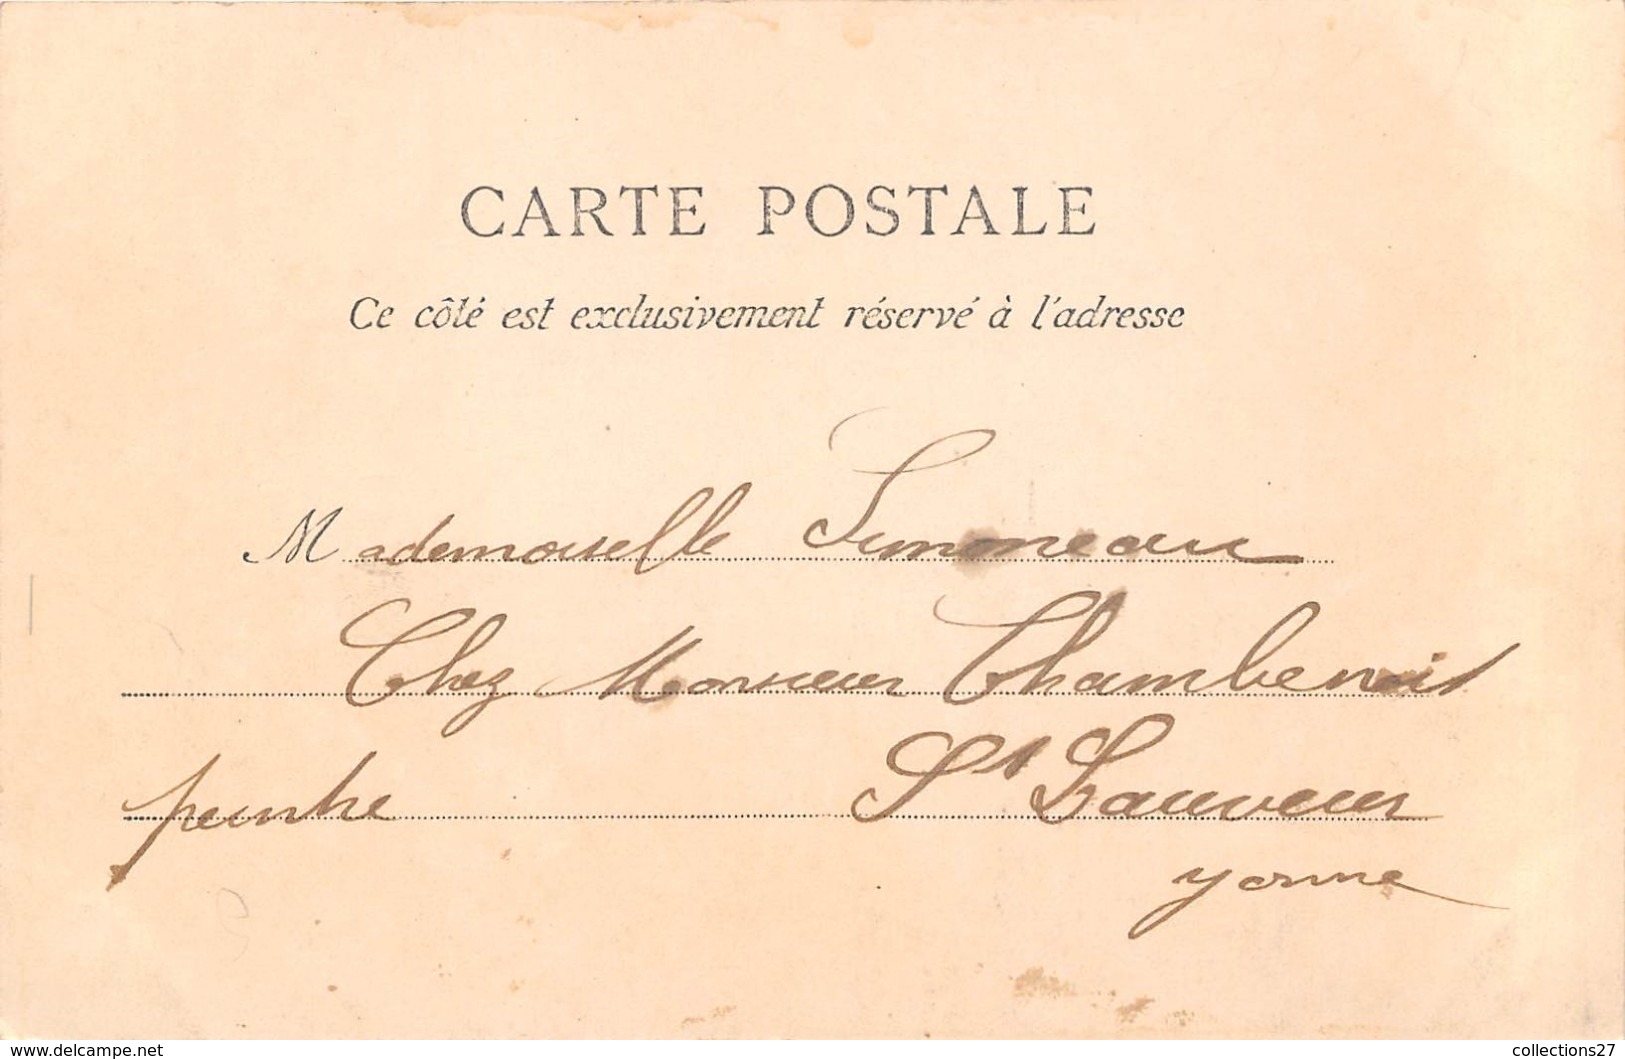 CARTE POSTALE
Ce côté est exclusivement réservé à l'adresse
Mademoiselle Simoneau
Chez Monsieur Chambenoit
peintre St Sauveur
yonne
delcampe.net
collections27